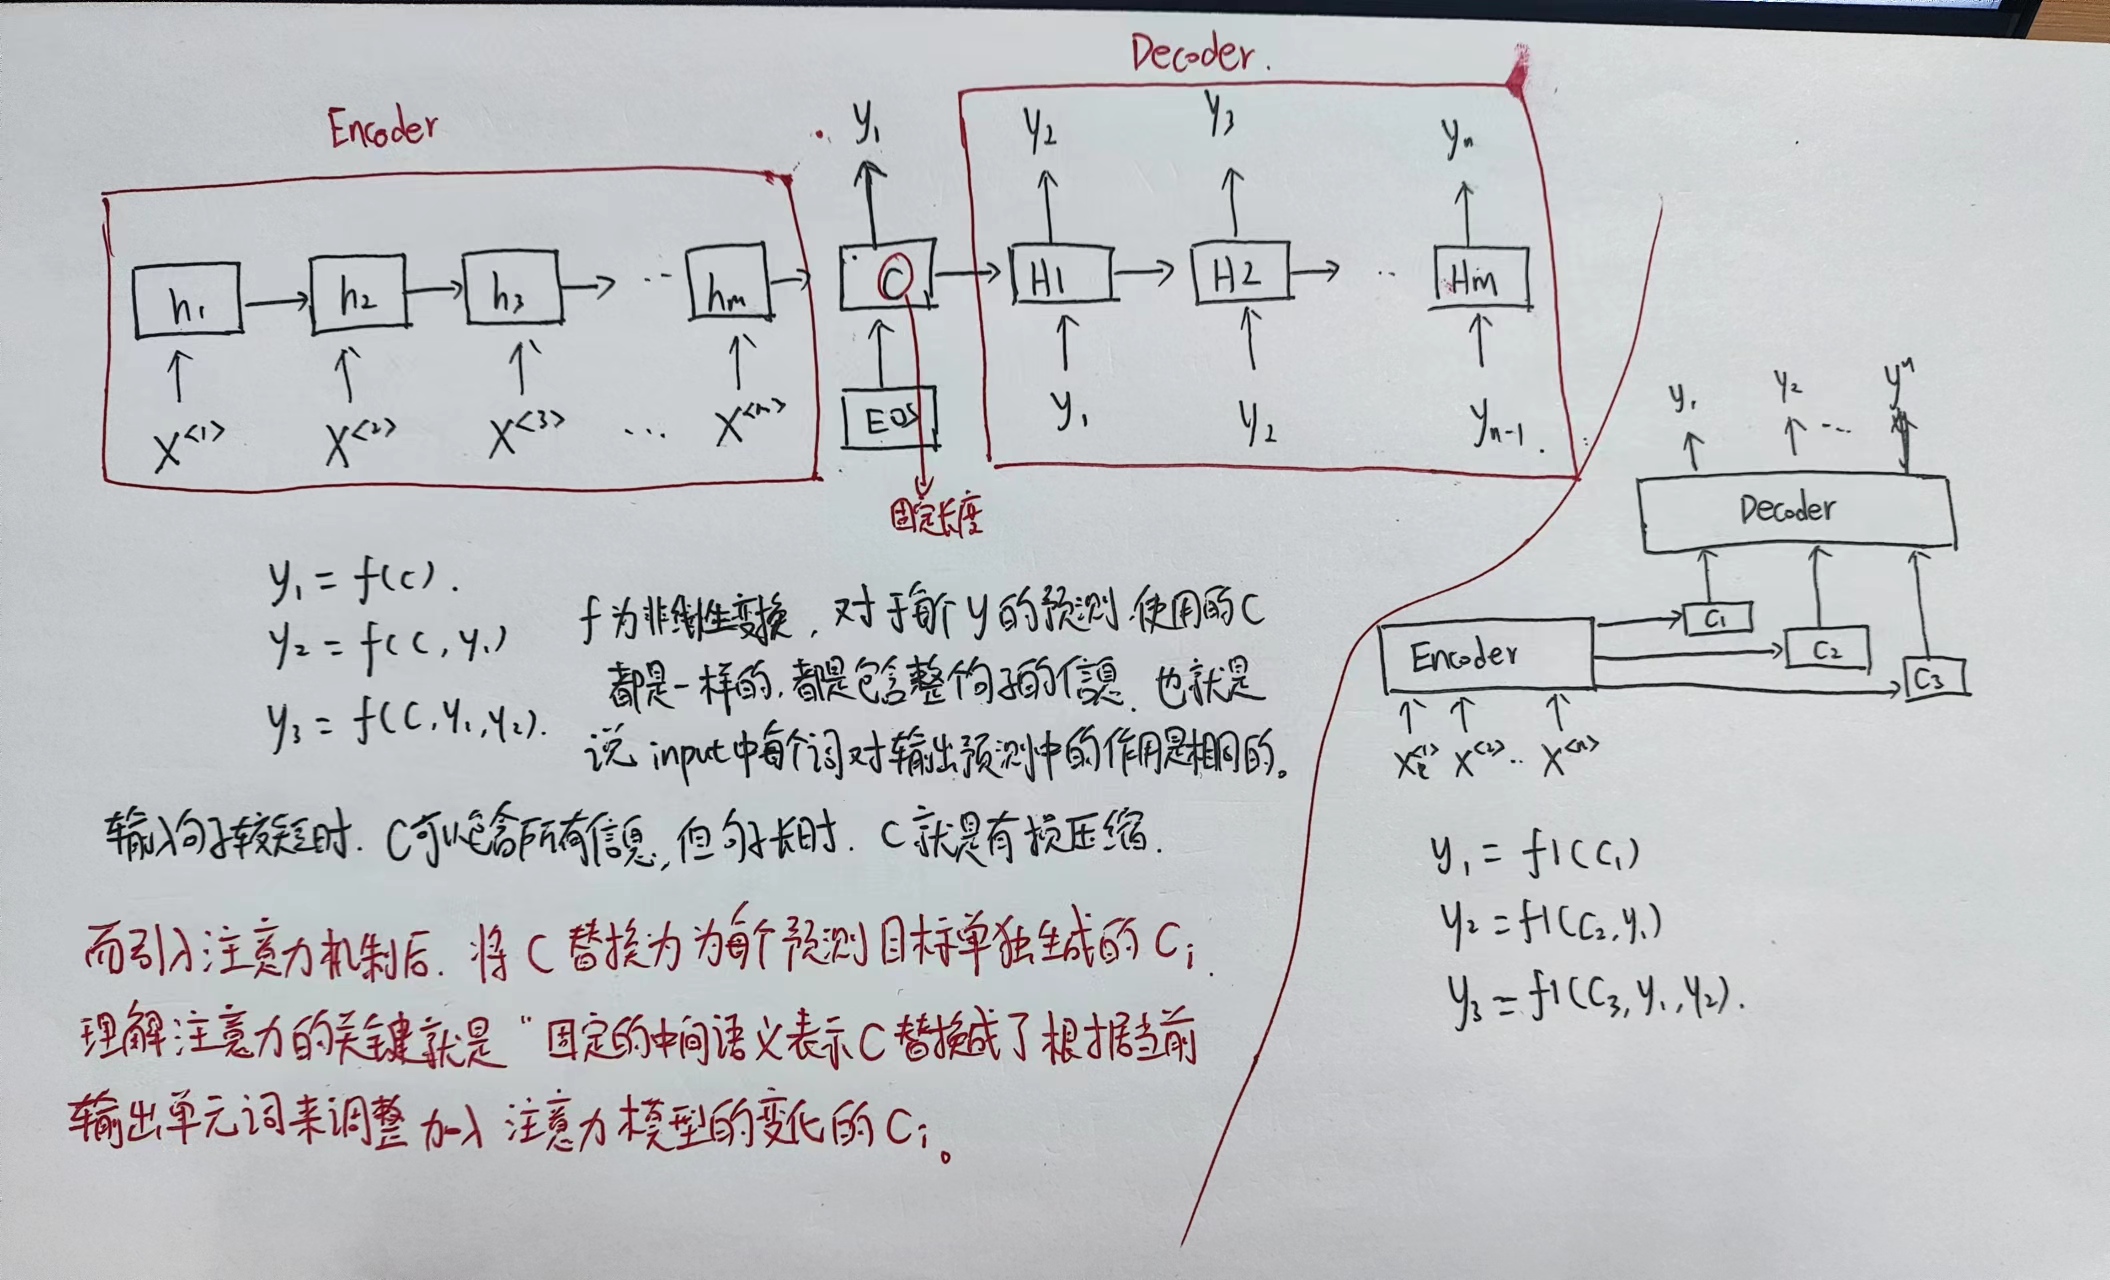 Decoder.
Encoder
y₁ y₂ y₃ yₙ
h₁ h₂ h₃ ·· hₘ C H1 H2 ·· Hm
X<1> X<2> X<3> ... X<n> EOS y₁ y₂ yₙ₋₁.
固定长度
y₁ = f(c).
y₂ = f(c, y₁)
y₃ = f(C, y₁, y₂).
f为非线性变换, 对于每个y的预测.使用的C
都是一样的,都是包含整个句子的信息. 也就是
说 input中每个词对输出预测中的作用是相同的。
输入句子较短时. C可以包含所有信息, 但句子长时. C就是有损压缩.
而引入注意力机制后. 将C替换为为每个预测目标单独生成的Cᵢ.
理解注意力的关键就是“固定的中间语义表示C替换成了根据当前
输出单元词来调整加入注意力模型的变化的Cᵢ。
y₁ y₂ ... yⁿ
Decoder
C₁
C₂
C₃
Encoder
X<1> X<2> ·· X<n>
y₁ = f1(C₁)
y₂ = f1(C₂, y₁)
y₃ = f1(C₃, y₁, y₂).